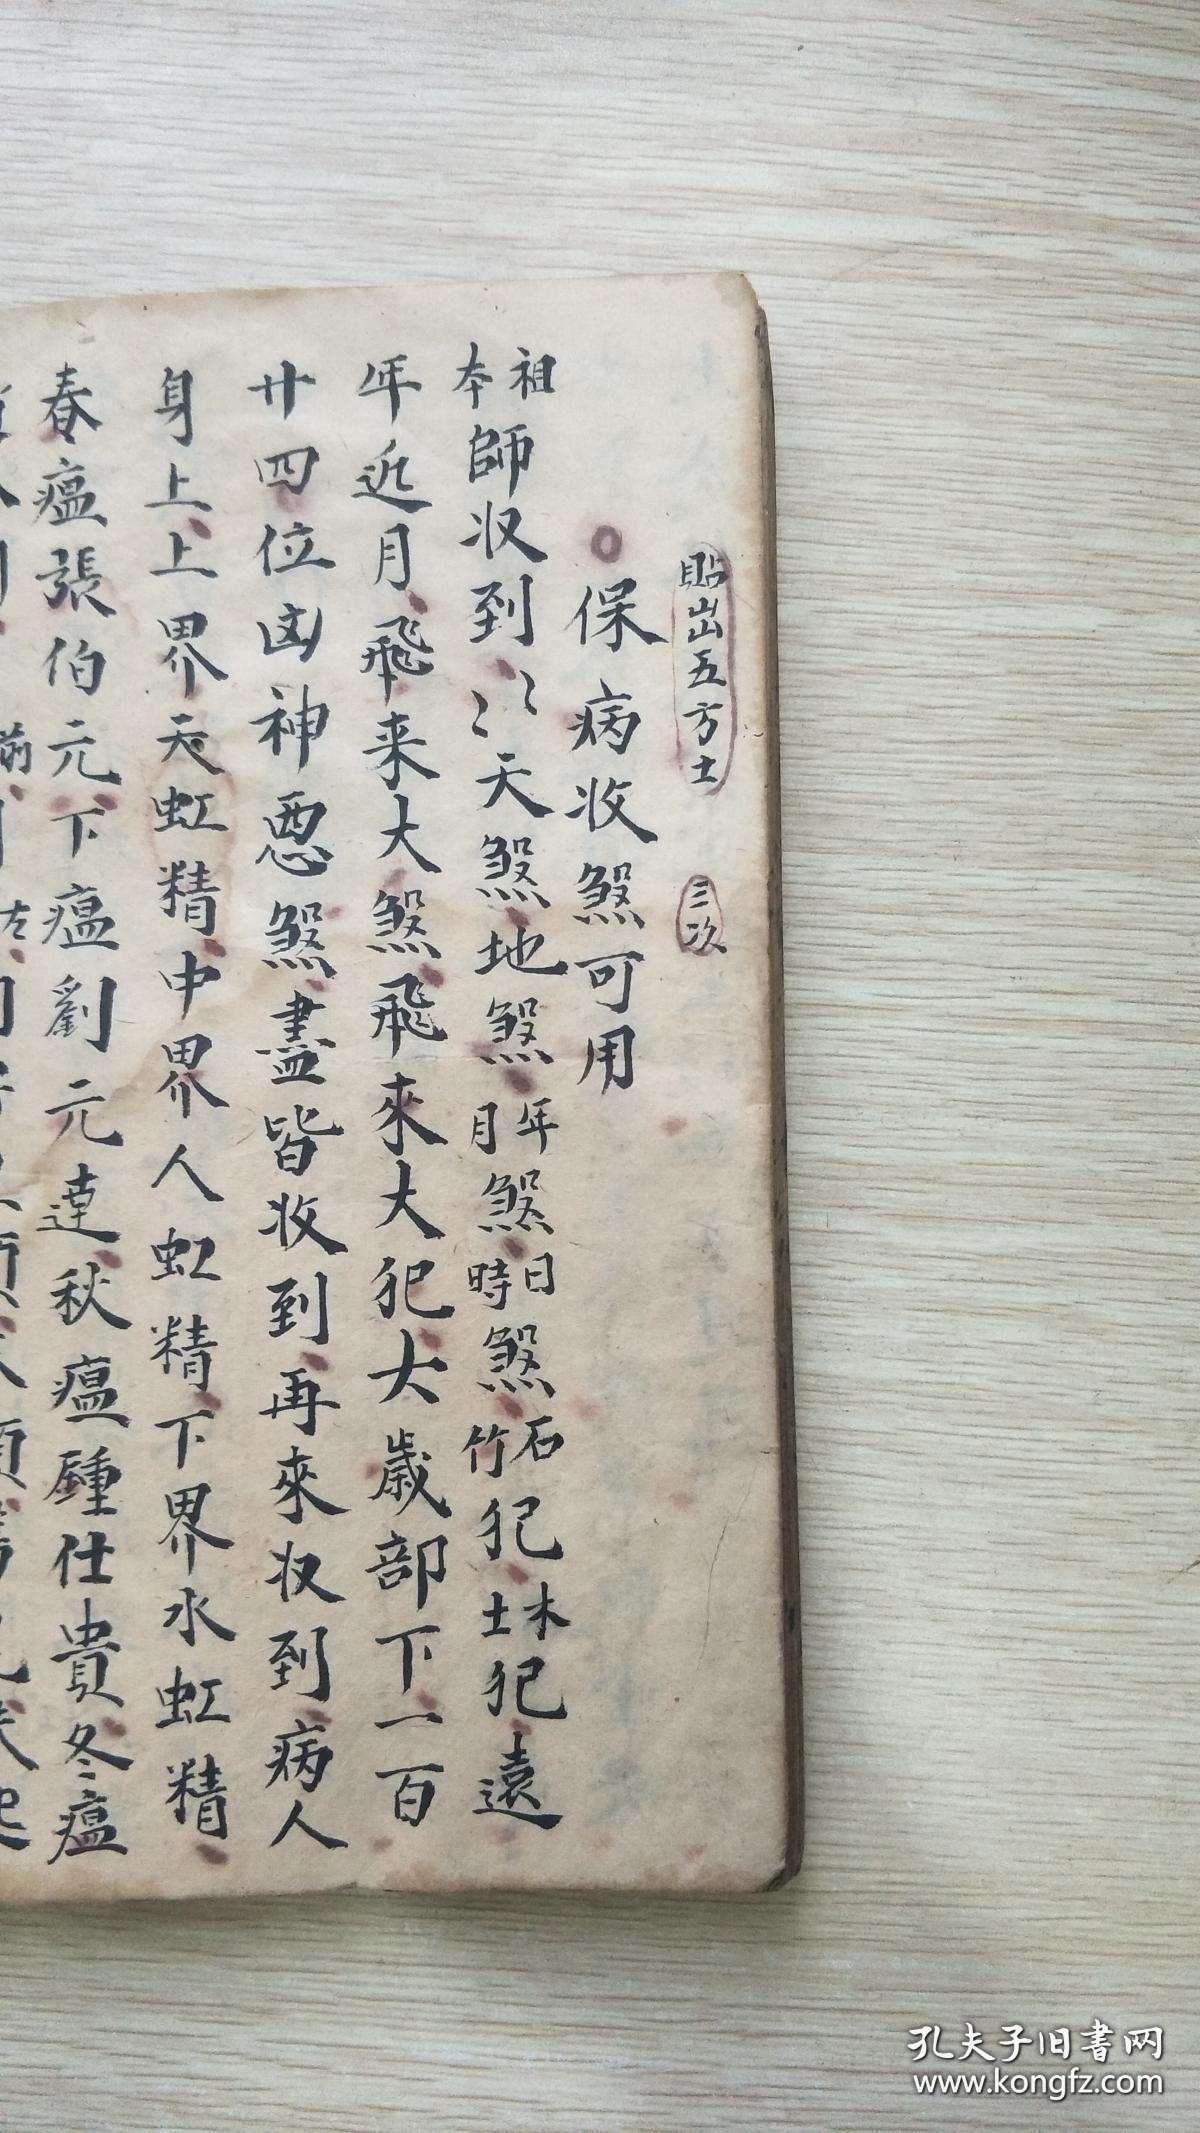 貼出五方士 三次
保病收煞可用
祖本師收到〻〻天煞地煞年月煞日時煞石竹犯木土犯遠
年近月飛来大煞飛來大犯大歲部下一百
廿四位凶神惡煞盡皆收到再來收到病人
身上上界天虹精中界人虹精下界水虹精
春瘟張伯元下瘟劉元達秋瘟鍾仕貴冬瘟
孔夫子旧书网
www.kongfz.com